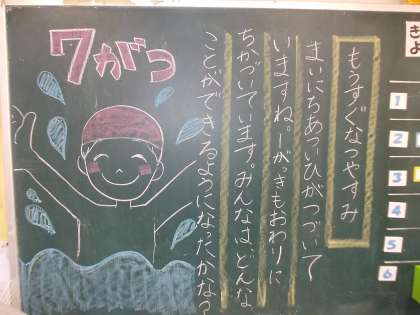 7がつ
もうすぐなつやすみ
まいにちあついひがつづいて
いますね。1がっきもおわりに
ちかづいています。みんなは、どんな
ことができるようになったかな?
きょ
1
2
3
4
5
6